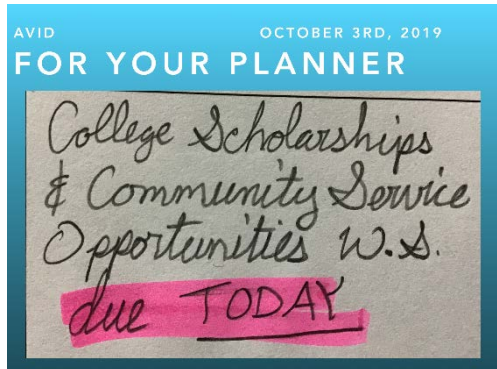 AVID OCTOBER 3RD, 2019
FOR YOUR PLANNER
College Scholarships
& Community Service
Opportunities W.S.
due TODAY